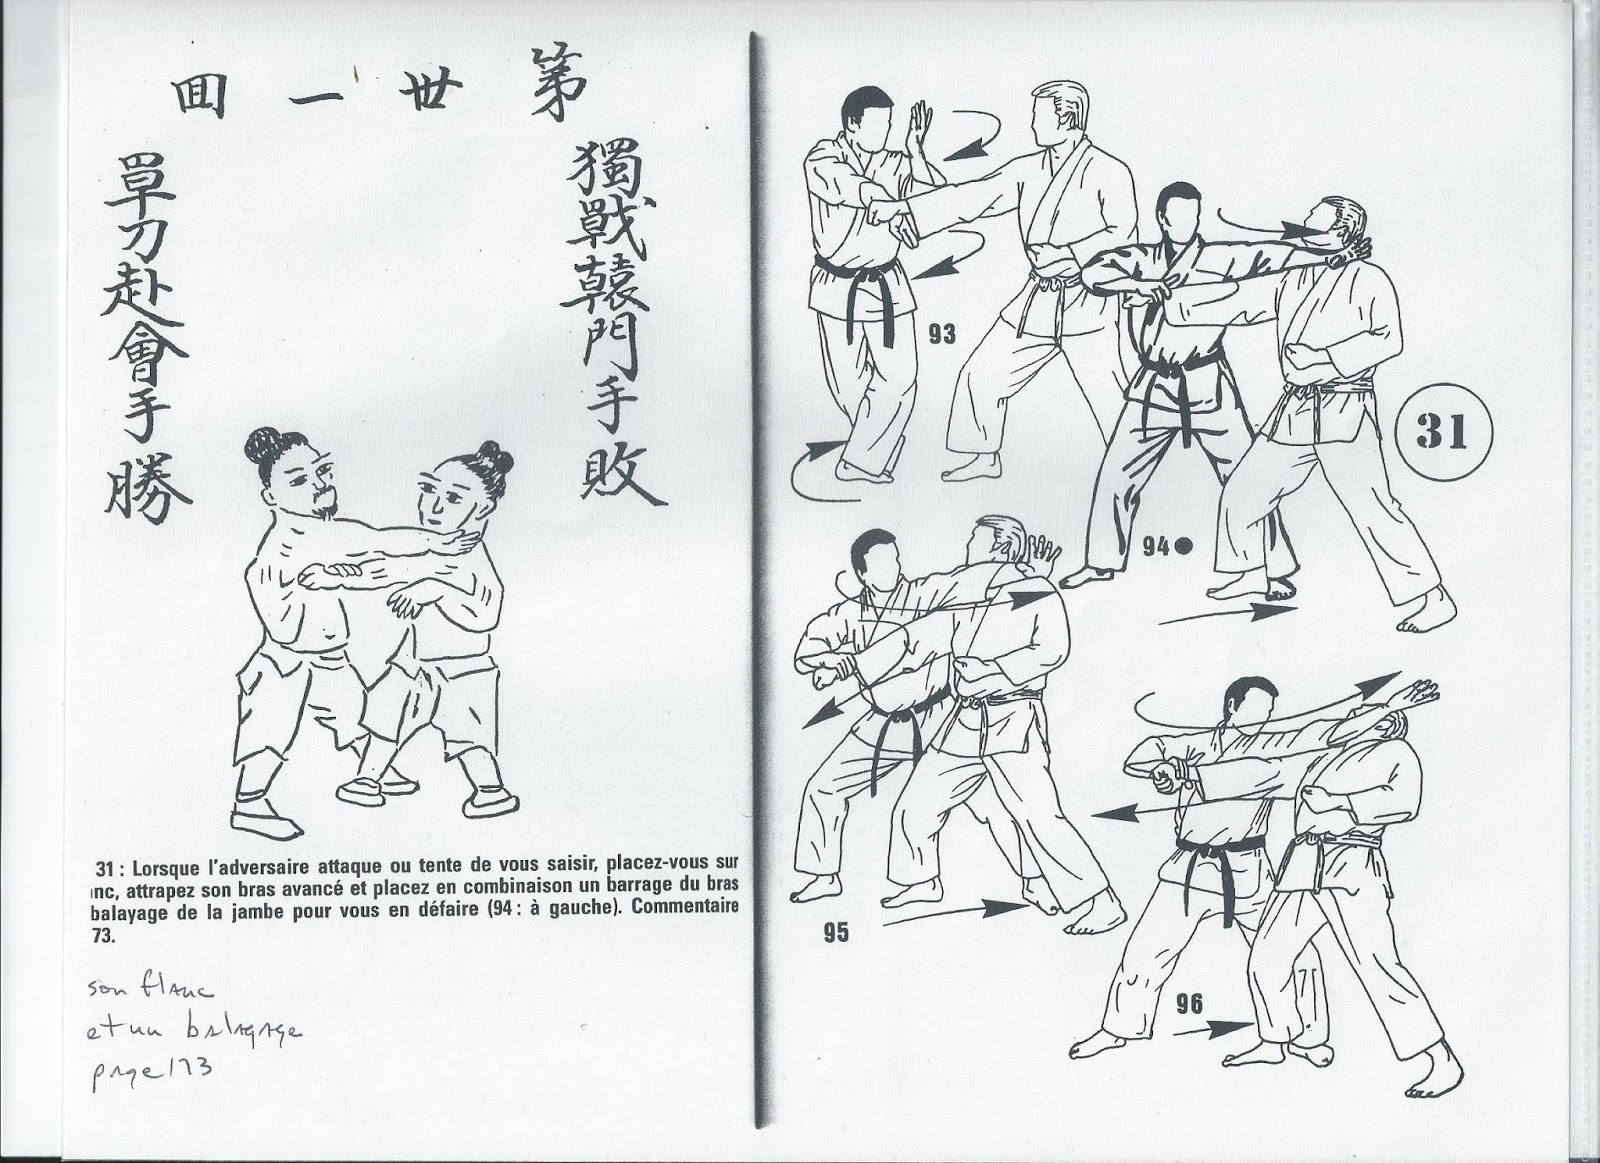 第丗一囬
獨戰轅門手敗
單刀赴會手勝
31 : Lorsque l'adversaire attaque ou tente de vous saisir, placez-vous sur
nc, attrapez son bras avancé et placez en combinaison un barrage du bras
balayage de la jambe pour vous en défaire (94 : à gauche). Commentaire
73.
son flanc
et un balayage
page 173
93
94●
31
95
96